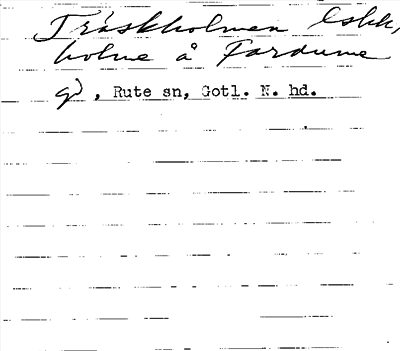 Träskholmen
holme å Fardume
gd, Rute sn, Gotl. N. hd.